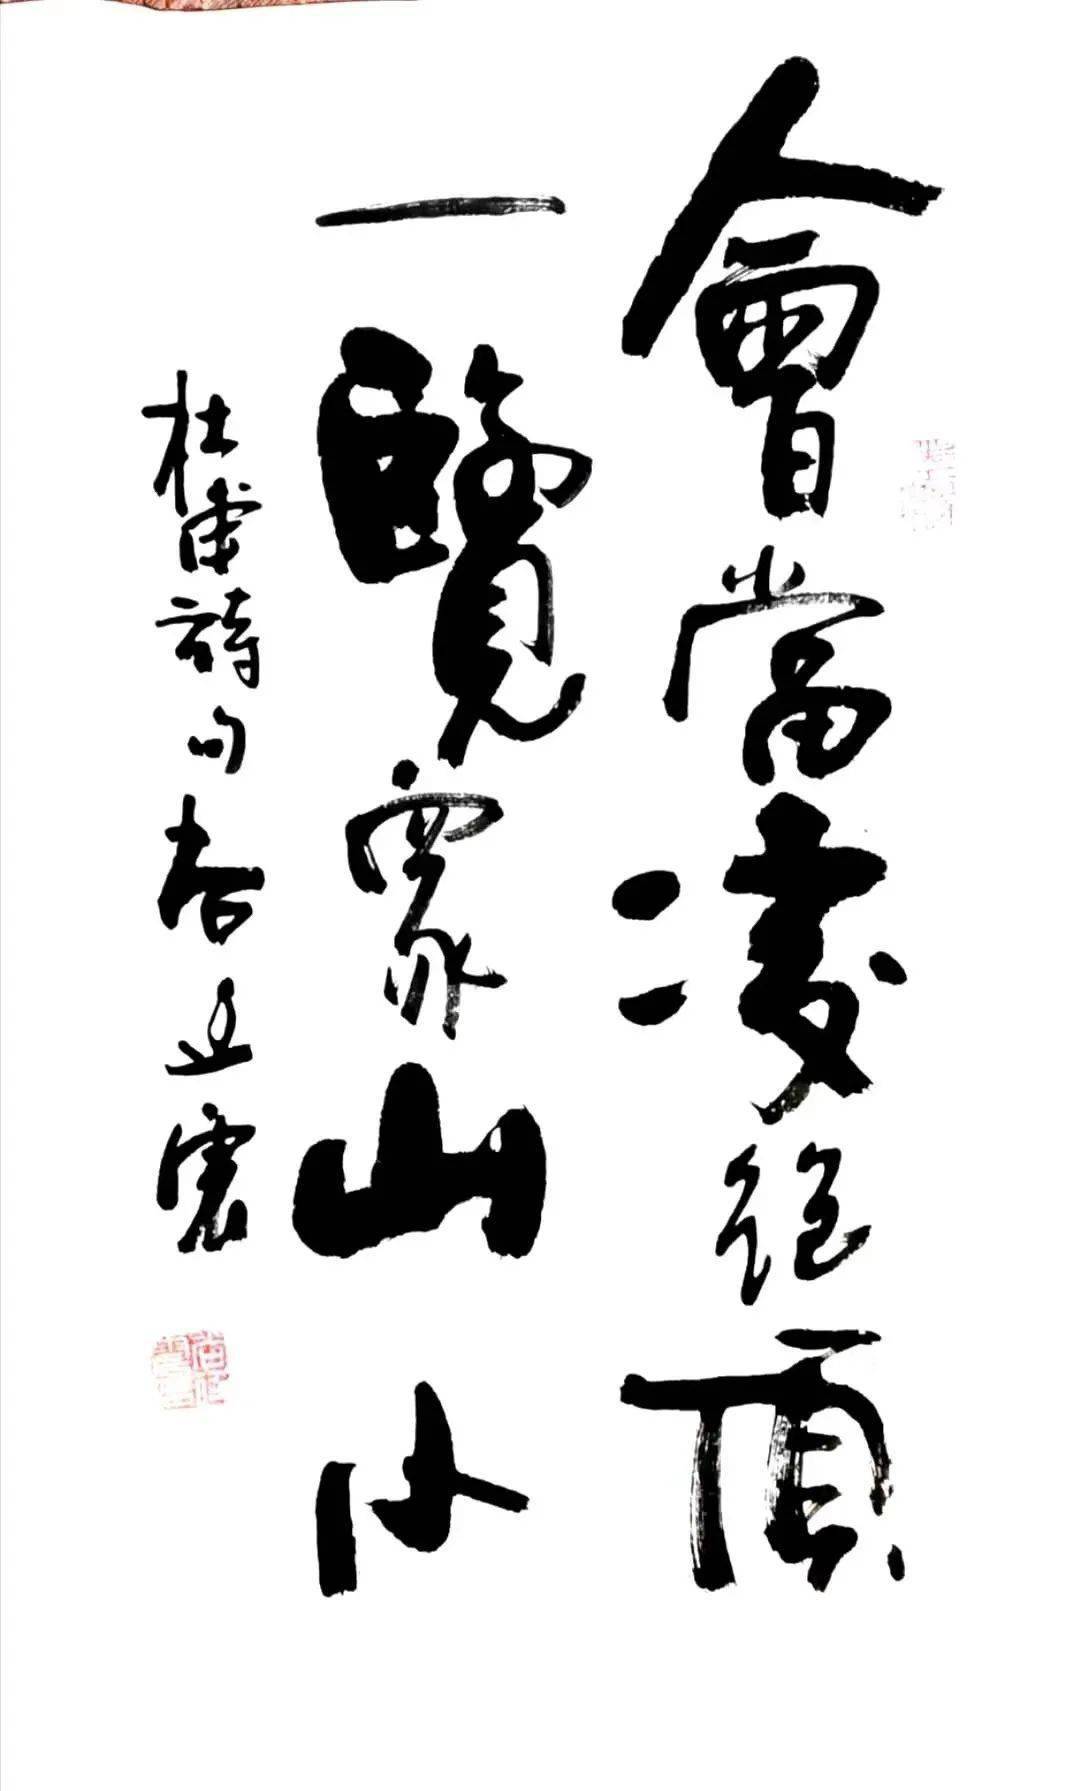 會當凌絕頂
一覽眾山小
杜甫詩句